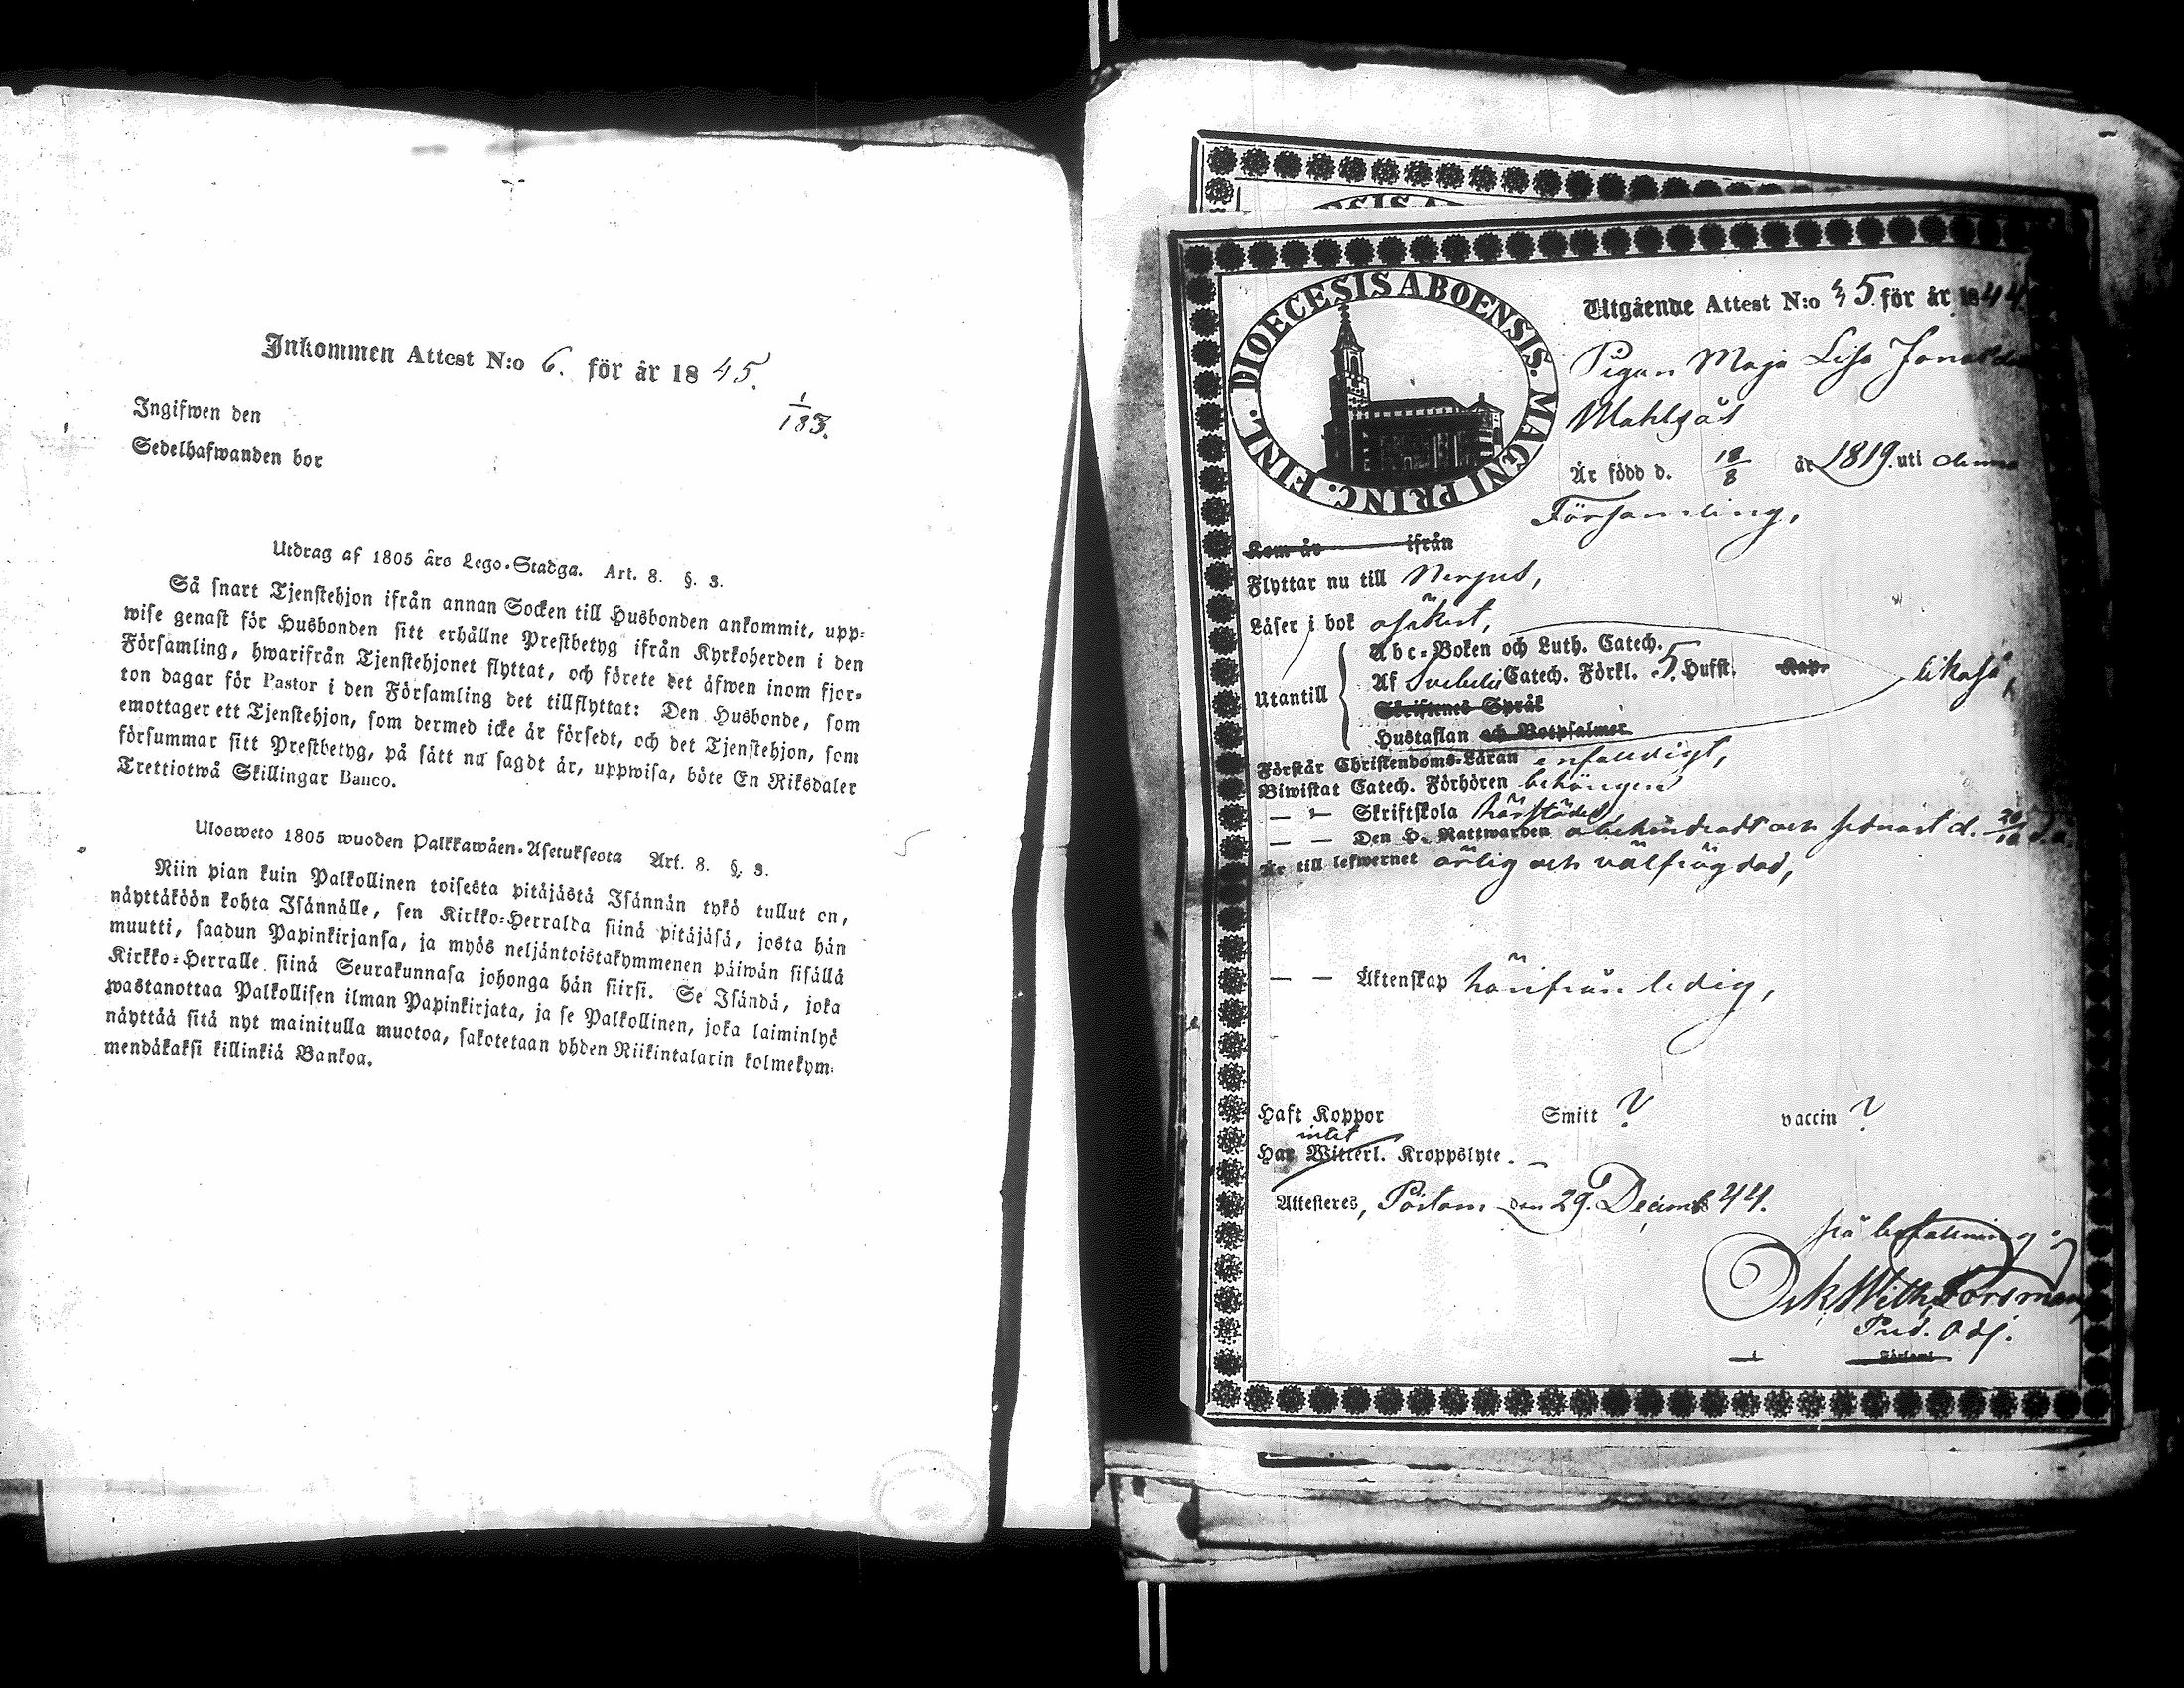 Inkommen Attest N:o 6. för år 1845.
1/183.
Ingifwen den
Sedelhafwanden bor
Utdrag af 1805 års Lego-Stadga. Art. 8. §. 3.
Så snart Tjenstehjon ifrån annan Socken till Husbonden ankommit, upp-
wise genast för Husbonden sitt erhållne Prestbetyg ifrån Kyrkoherden i den
Församling, hwarifrån Tjenstehjonet flyttat, och förete det äfwen inom fjor-
ton dagar för Pastor i den Församling det tillflyttat: Den Husbonde, som
emottager ett Tjenstehjon, som dermed icke är försedt, och det Tjenstehjon, som
försummar sitt Prestbetyg, på sätt nu sagdt är, uppwisa, böte En Riksdaler
Trettiotwå Skillingar Banco.
Ulosweto 1805 wuoden Palkkawäen-Asetuksesta Art. 8. §. 3.
Niin pian kuin Palkollinen toisesta pitäjästä Isännän tykö tullut on,
näyttäköön kohta Isännälle, sen Kirkko-Herralda siinä pitäjäsä, josta hän
muutti, saadun Papinkirjansa, ja myös neljäntoistakymmenen päiwän sisällä
Kirkko-Herralle siinä Seurakunnasa johonga hän siirsi. Se Isändä, joka
wastanottaa Palkollisen ilman Papinkirjata, ja se Palkollinen, joka laiminlyö
näyttää sitä nyt mainitulla muotoa, sakotetaan yhden Riikintalarin kolmekym-
mendäkaksi killinkiä Bankoa.
DIOECESIS ABOENSIS. MAGNI PRINC. FINL.
Utgående Attest N:o 35. för år 1844.
Pigan Maja Lisa
Är född d. 18/8 år 1819. uti denna
Församling,
Kom år ifrån
Flyttar nu till
Läser i bok
Abc-Boken och Luth. Catech.
Utantill Af Svebelii Catech. Förkl. 5. Hufst. Kap. likaså,
Skriftenes Språk
Hustaflan och Botpsalmer
Förstår Christendoms-Läran enfaldigt,
Biwistat Catech. Förhören behörigen
— — Skriftskola härstädes,
— — Den H. Nattwarden obehindradt och sednast d.
Är till lefwernet ärlig och välfrägdad,
— — Äktenskap härifrån ledig,
Haft Koppor Smitt ? vaccin ?
intet
Har Witterl. Kroppslyte.
Attesteres, Pörtom den 29. Decemb 44.
på befallning
Wilh. Forsman
Pred. Adj.